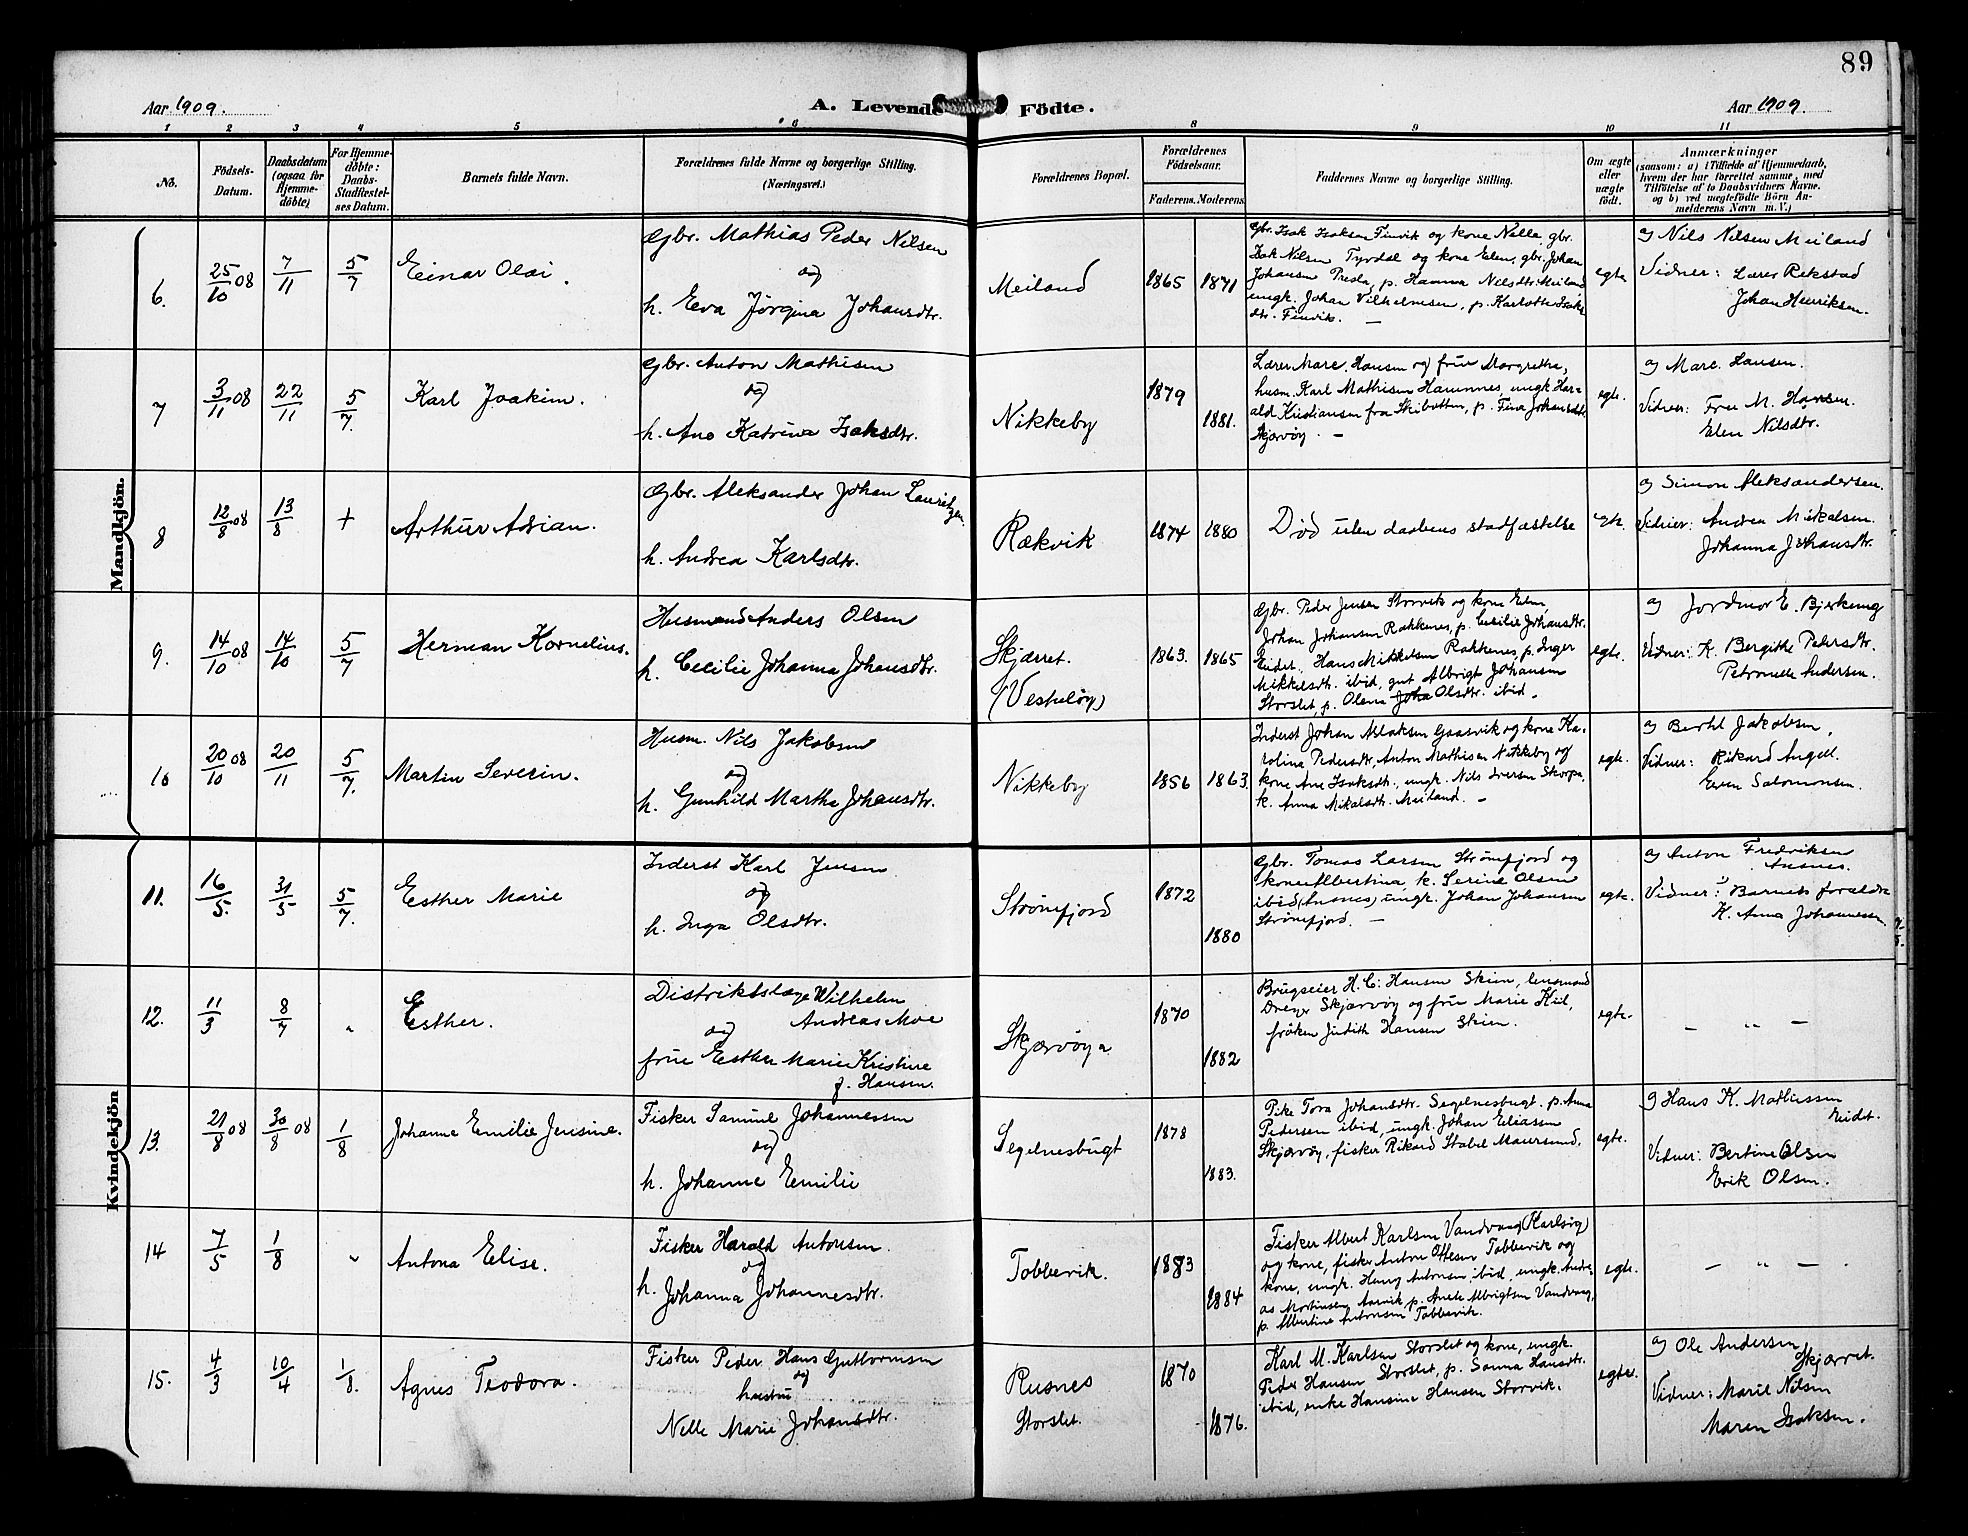 89
Aar 1909.
A. Levende Födte.
Aar 1909.
1 2 3 4 5 6 8 9 10 11
No.
Födsels-Datum.
Daabsdatum (ogsaa for Hjemme-döbte)
For Hjemme-döbte: Daabs-Stadfæstel-ses Datum.
Barnets fulde Navn.
Forældrenes fulde Navne og borgerlige Stilling.
(Næringsvei.)
Forældrenes Bopæl.
Forældrenes Födselsaar.
Faderens. Moderens.
Faddernes Navne og borgerlige Stilling.
Om ægte eller uægte födt.
Anmærkninger
(saasom: a) i Tilfælde af Hjemmedaab,
hvem der har forrettet samme, med
Tilföielse af to Daabsvidners Navne.
og b) ved uægtefödte Börn An-
melderens Navn m. V.)
Mandkjön.
6. 25/10 08 7/11 5/7 Einar Olai.
Gbr. Mathias Peder Nilsen
og
h. Eva Jørgina Johansdtr.
Meiland 1865 1871
Gbr. Isak Isaksen Finvik og kone Nella, gbr.
Isak Nilsen Tyrdal og kone Elen, gbr. Johan
Johansen Presta, p. Hanna Nilsdtr. Meiland
ungk. Johan Vilhelmsen, p. Karlotte Isaks
dtr. Finvik. —
egte
a) Nils Nilsen Meiland
Vidner: Lærer Rekstad
Johan Henriksen.
7 3/11 08 22/11 5/7. Karl Joakim.
Gbr. Anton Mathisen
og
h. Ane Katrina Isaksdtr.
Nikkeby 1879 1881.
Lærer Marc. Hansen og frue Margrethe,
husm. Karl Mathisen Hamnnes, ungk. Har-
ald Kristiansen fra Skibotten, p. Fina Johansdtr.
Skjervøy. —
egte.
a) Marc. Hansen.
Vidner: Fru M. Hansen.
Elen Nilsdtr.
8 12/8 08 13/8 + Arthur Adrian.
Gbr. Aleksander Johan Lauritzen.
h. Andrea Karlsdtr.
Rækvik 1874 1880
Død uten daabens stadfæstelse
egte.
a) Simon Aleksandersen.
Vidner: Andrea Mikalsen.
Johanna Johansdtr.
9. 14/10 08 14/10 5/7 Herman Kornelius.
Husmand Anders Olsen
h. Cecilie Johanna Johansdtr.
Skjærret.
(Vesteløy)
1863. 1865
Gbr. Peder Jensen Storvik og kone Elen,
Johan Johansen Rakkenes, p. Cecilie Johansdtr.
Eidet, Hans Mikkelsen Rakkenes, p. Inger
Mikkelsdtr. ibid, gut Albrigt Johansen
Storslet, p. Olena Joha Olsdtr. ibid.
egte.
a) Jordmor E. Bjerkeng
Vidner: K. Bergitte Petersdtr.
Petronelle Andersen.
10 20/10 08 20/11 5/7. Martin Severin.
Husm. Nils Jakobsen
og
h. Gunhild Martha Johansdtr.
Nikkeby 1856 1863.
Inderst Johan Aslaksen Gaasvik og kone Ka-
rolina Pedersdtr, Anton Mathisen Nikkeby og
kone Ane Isaksdtr., ungk. Nils Iversen Skorpa,
k. Anna Mikalsdtr. Meiland. —
egte.
a) Berthl Jakobsen,
Vidner: Rikard Angell.
Even Salomonsen.
Kvindekjön
11. 16/5. 31/5 5/7. Esther Marie
Inderst Karl Jensen
og
h. Inga Olsdtr.
Strømfjord 1872 1880
Gbr. Tomas Larsen Strømfjord og
kone Albertina, k. Serine Olsen
ibid (Ansnes), ungk. Johan Johansen
Strømfjord. —
egte.
a) Anton Fredriksen
Ansnes.
Vidner: Barnets forældre
K. Anna Johannessen
12. 11/3 8/7 " Esther.
Distriktslæge Wilhelm
Andreas Moe
og
frue Esther Marie Kristine
f. Hansen.
Skjærvøya 1870 1882
Brugseier H. C. Hansen Skien, lensmand
Dreyer Skjærvøy og frue Marie Kiil,
frøken Judith Hansen Skien.
egte.
— " —
13. 21/8 08 30/8 08 1/8 Johanne Emilie Jensine.
Fisker Samuel Johannessen
og
h. Johanne Emilie
Segelnesbugt 1878 1883.
Pike Tora Johansdtr. Segelnesbugt, p. Anna
Pedersen ibid, ungk. Johan Eliassen
Skjærvøy, fisker Rikard Stabel Maursund.
egte.
a) Hans K. Mathiassen
Eidet.
Vidner: Bertine Olsen
Erik Olsen.
14 7/5 1/8 " Antona Elise.
Fisker Harald Antonsen.
og
h. Johanna Johannesdtr.
Tobbevik. 1883 1884
Fisker Albert Karlsen Vandvaag (Karlsøy)
og kone, fisker Anton Ottesen Tobbevik og
kone, ungk. Henry Antonsen, ibid, ungk. Andre-
as Mortinsen Aarvik, p. Anete Albrigtsen Vandvaag,
p. Albertine Antonsen Tobbevik.
egte.
— " — .
15. 4/3 10/4 1/8. Agnes Teodora.
Fisker Peder Hans Guttormsen
og
hustru
Nelle Marie Johansdtr.
Rusnes
Storslet.
1870 1876.
Karl M. Karlsen Storslet og kone, ungk.
Peder Hansen Storslet, p. Sanna Hansdtr.
ibid, enke Hansine Hansen Storvik.
egte.
a) Ole Andersen
Skjærret.
Vidner: Marie Nilsen
Maren Isaksen.